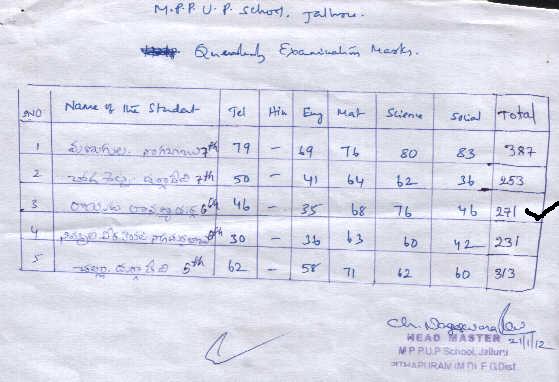 M.P.P.U.P. School, Jalluru.
Quarterly Examination Marks.
SNO Name of the Student Tel Hin Eng Mat Science Social Total
1 7th 79 - 69 76 80 83 387
2 7th 50 - 41 64 62 36 253
3 6th 46 - 35 68 76 46 271
4 30 - 36 63 60 42 231
5 5th 62 - 58 71 62 60 313
Ch. Nageswara Rao
21/1/12
HEAD MASTER
M P P.U.P School, Jalluru
PITHAPURAM (M Dt. E.G.Dist